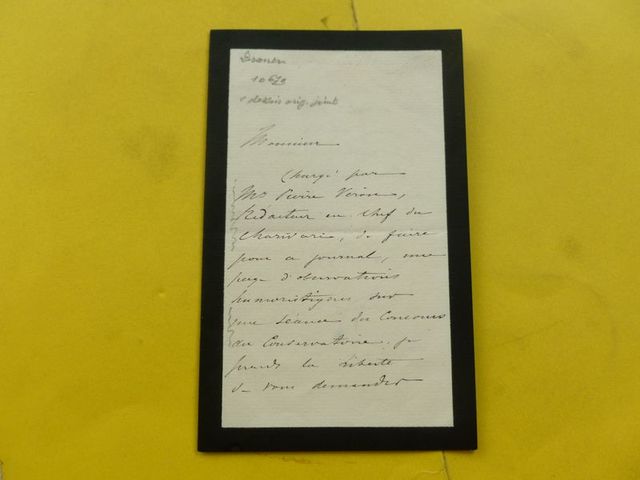 1 dessin orig. joint
Monsieur
Chargé par
Mr Pierre Veron,
Rédacteur en chef du
Charivari, de faire
pour ce journal, une
page d'observations
humoristiques sur
une séance du Concours
du Conservatoire, je
prends la liberté
de vous demander